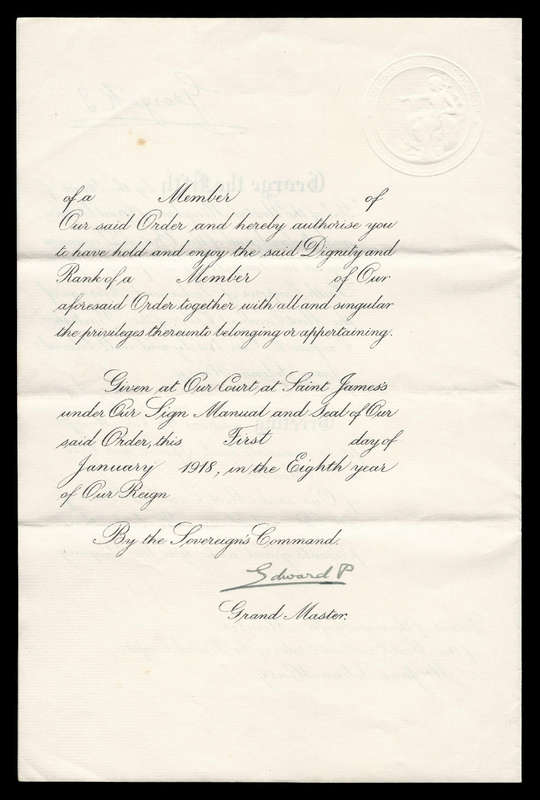 of a Member of
Our said Order and hereby authorise you
to have hold and enjoy the said Dignity and
Rank of a Member of Our
aforesaid Order together with all and singular
the privileges thereunto belonging or appertaining.
Given at Our Court at Saint James's
under Our Sign Manual and Seal of Our
said Order, this First day of
January 1918, in the Eighth year
of Our Reign
By the Sovereign's Command.
Edward P
Grand Master.